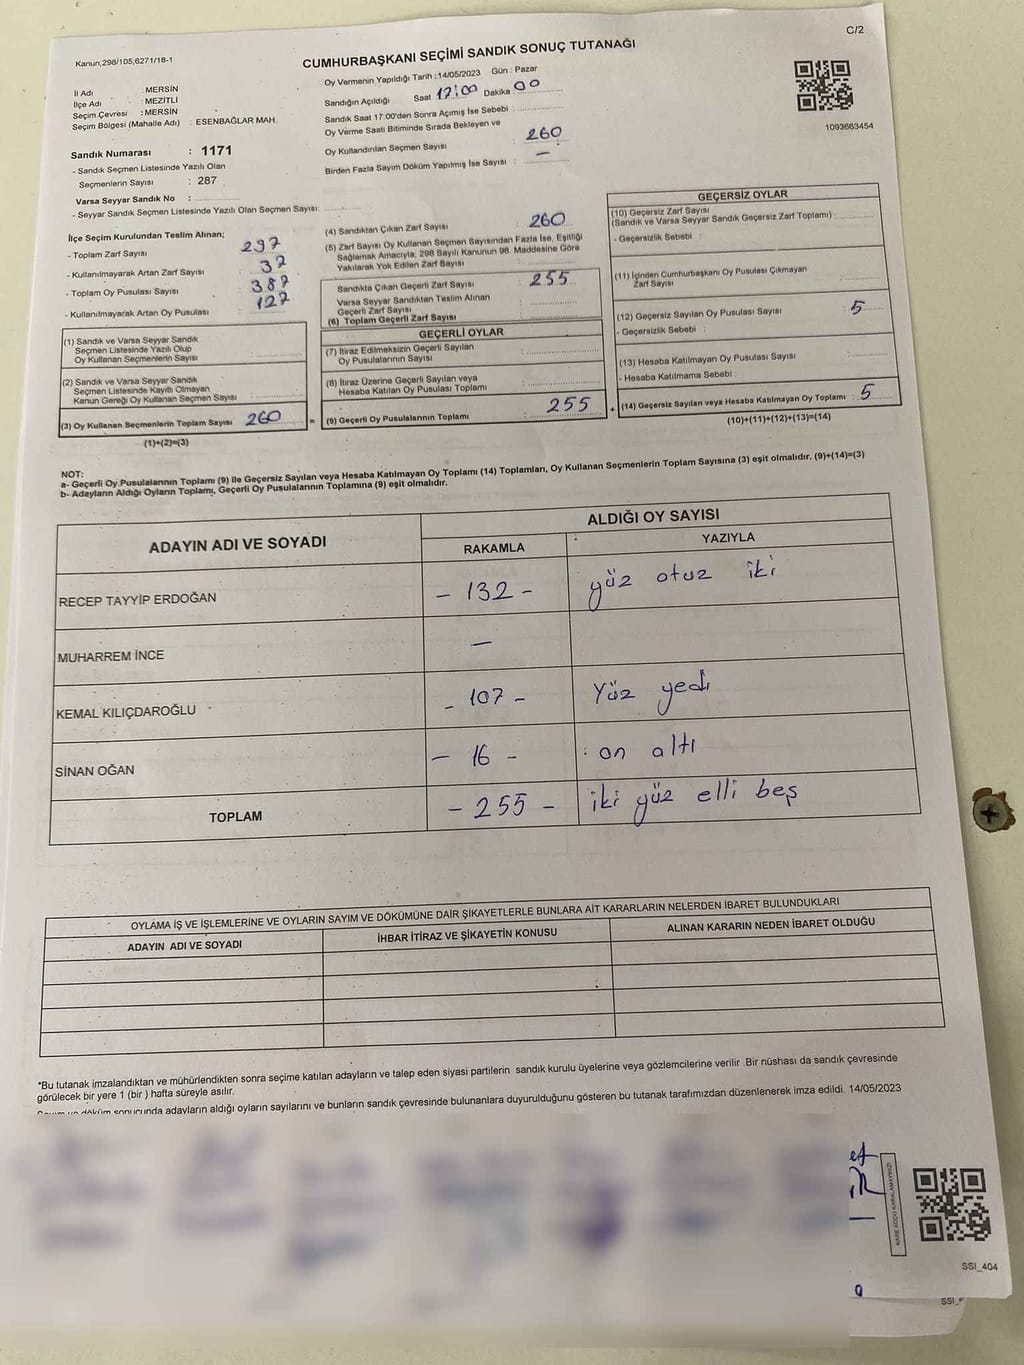 C/2
Kanun,298/105,6271/18-1
CUMHURBAŞKANI SEÇİMİ SANDIK SONUÇ TUTANAĞI
İl Adı : MERSİN
İlçe Adı : MEZİTLİ
Seçim Çevresi : MERSİN
Seçim Bölgesi (Mahalle Adı) : ESENBAĞLAR MAH.
Oy Vermenin Yapıldığı Tarih :14/05/2023 Gün : Pazar
Sandığın Açıldığı Saat 17:00 Dakika : 00
Sandık Saat 17.00'den Sonra Açımış İse Sebebi :
Oy Verme Saati Bitiminde Sırada Bekleyen ve
Oy Kullandırılan Seçmen Sayısı : 260
Birden Fazla Sayım Döküm Yapılmış İse Sayısı : —
1093663454
Sandık Numarası : 1171
- Sandık Seçmen Listesinde Yazılı Olan
Seçmenlerin Sayısı : 287
Varsa Seyyar Sandık No :
- Seyyar Sandık Seçmen Listesinde Yazılı Olan Seçmen Sayısı:
İlçe Seçim Kurulundan Teslim Alınan;
- Toplam Zarf Sayısı 297
- Kullanılmayarak Artan Zarf Sayısı 37
- Toplam Oy Pusulası Sayısı 387
- Kullanılmayarak Artan Oy Pusulası 127
(1) Sandık ve Varsa Seyyar Sandık
Seçmen Listesinde Yazılı Olup
Oy Kullanan Seçmenlerin Sayısı :
(2) Sandık ve Varsa Seyyar Sandık
Seçmen Listesinde Kayıtlı Olmayan
Kanun Gereği Oy Kullanan Seçmen Sayısı :
(3) Oy Kullanan Seçmenlerin Toplam Sayısı 260 =
(1)+(2)=(3)
(4) Sandıktan Çıkan Zarf Sayısı : 260
(5) Zarf Sayısı Oy Kullanan Seçmen Sayısından Fazla İse, Eşitliği
Sağlamak Amacıyla, 298 Sayılı Kanunun 98. Maddesine Göre
Yakılarak Yok Edilen Zarf Sayısı
Sandıkta Çıkan Geçerli Zarf Sayısı : 255
Varsa Seyyar Sandıktan Teslim Alınan
Geçerli Zarf Sayısı
(6) Toplam Geçerli Zarf Sayısı
GEÇERLİ OYLAR
(7) İtiraz Edilmeksizin Geçerli Sayılan
Oy Pusulalarının Sayısı
(8) İtiraz Üzerine Geçerli Sayılan veya
Hesaba Katılan Oy Pusulası Toplamı
(9) Geçerli Oy Pusulalarının Toplamı 255 +
GEÇERSİZ OYLAR
(10) Geçersiz Zarf Sayısı
(Sandık ve Varsa Seyyar Sandık Geçersiz Zarf Toplamı) :
- Geçersizlik Sebebi :
(11) İçinden Cumhurbaşkanı Oy Pusulası Çıkmayan
Zarf Sayısı
(12) Geçersiz Sayılan Oy Pusulası Sayısı : 5
- Geçersizlik Sebebi :
(13) Hesaba Katılmayan Oy Pusulası Sayısı
- Hesaba Katılmama Sebebi :
(14) Geçersiz Sayılan veya Hesaba Katılmayan Oy Toplamı : 5
(10)+(11)+(12)+(13)=(14)
NOT:
a- Geçerli Oy Pusulalarının Toplamı (9) ile Geçersiz Sayılan veya Hesaba Katılmayan Oy Toplamı (14) Toplamları, Oy Kullanan Seçmenlerin Toplam Sayısına (3) eşit olmalıdır. (9)+(14)=(3)
b- Adayların Aldığı Oyların Toplamı, Geçerli Oy Pusulalarının Toplamına (9) eşit olmalıdır.
ADAYIN ADI VE SOYADI
ALDIĞI OY SAYISI
RAKAMLA YAZIYLA
RECEP TAYYİP ERDOĞAN - 132 - yüz otuz iki
MUHARREM İNCE —
KEMAL KILIÇDAROĞLU - 107 - Yüz yedi
SİNAN OĞAN - 16 - on altı
TOPLAM - 255 - iki yüz elli beş
OYLAMA İŞ VE İŞLEMLERİNE VE OYLARIN SAYIM VE DÖKÜMÜNE DAİR ŞİKAYETLERLE BUNLARA AİT KARARLARIN NELERDEN İBARET BULUNDUKLARI
ADAYIN ADI VE SOYADI İHBAR İTİRAZ VE ŞİKAYETİN KONUSU ALINAN KARARIN NEDEN İBARET OLDUĞU
*Bu tutanak imzalandıktan ve mühürlendikten sonra seçime katılan adayların ve talep eden siyasi partilerin sandık kurulu üyelerine veya gözlemcilerine verilir .Bir nüshası da sandık çevresinde
görülecek bir yere 1 (bir ) hafta süreyle asılır.
Sayım ve döküm sonucunda adayların aldığı oyların sayılarını ve bunların sandık çevresinde bulunanlara duyurulduğunu gösteren bu tutanak tarafımızdan düzenlenerek imza edildi. 14/05/2023
KARE KODU KARALAMAYINIZ!
SSİ_404
SSİ_